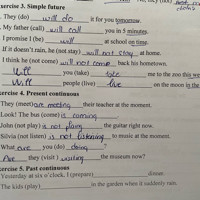 ercise 3. Simple future
. They (do) will do it for you tomorrow.
. My father (call) will call you in 5 minutes.
I promise I (be) will at school on time.
If it doesn't rain, he (not stay) will not stay at home.
I think he (not come) will not come back his hometown.
Will you (take) take me to the zoo this we
Will people (live) live on the moon in the
ercise 4. Present continuous
They (meet) are meeting their teacher at the moment.
Look! The bus (come) is coming.
John (not play) is not playing the guitar right now.
Silvia (not listen) is not listening to music at the moment.
What are you (do) doing ?
Are they (visit) visiting the museum now?
ercise 5. Past continuous
Yesterday at six o'clock, I (prepare) dinner.
The kids (play) in the garden when it suddenly